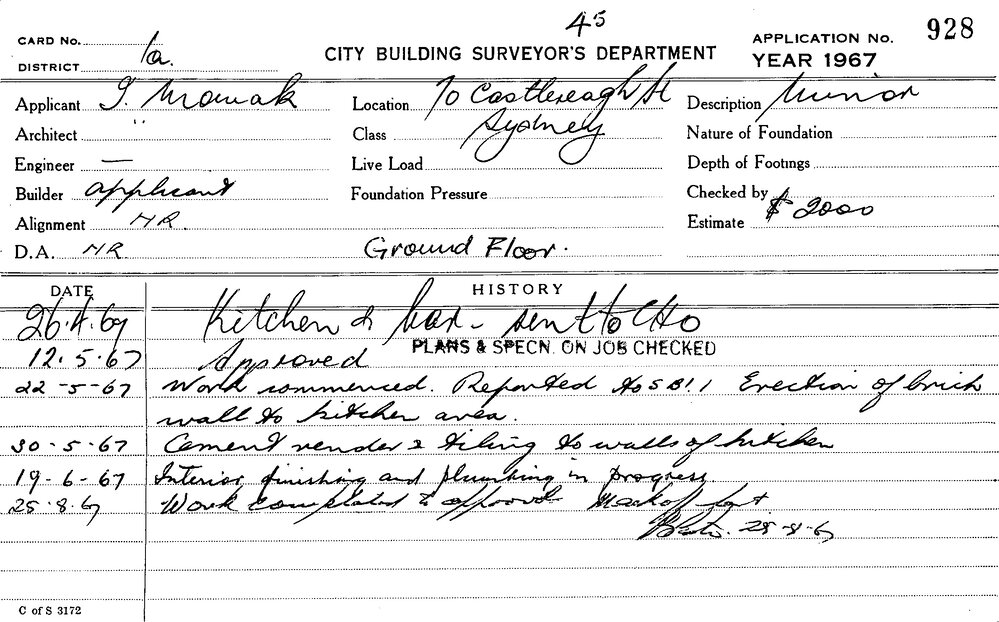 45
CARD No.
DISTRICT 1a.
CITY BUILDING SURVEYOR'S DEPARTMENT
APPLICATION No. 928
YEAR 1967
Applicant Location 70 Castlereagh St Description Minor
Architect " Class Sydney Nature of Foundation
Engineer — Live Load Depth of Footings
Builder applicant Foundation Pressure Checked by
Alignment NR. Estimate $2000
D.A. NR Ground Floor.
DATE HISTORY
26.4.67 Kitchen & bar - sent to CHO
12.5.67 Approved PLANS & SPECN. ON JOB CHECKED
22-5-67 Work commenced. Reported to SBI. 1 Erection of brick
wall to kitchen area.
30-5-67 Cement render & tiling to walls of kitchen
19-6-67 Interior finishing and plumbing in progress.
25.8.67 Work completed to approval
25-8-67
C of S 3172